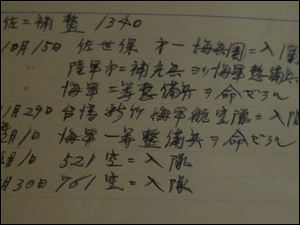 佐二補整 1340
10月15日 佐世保 第一海兵團ニ入團
〃 陸軍第二補充兵ヨリ海軍整備兵
〃 海軍二等整備兵ヲ命ぜらル
1月29日 台湾新竹海軍航空隊ニ入隊
月10 海軍一等整備兵ヲ命ぜらル
月10 521空ニ入隊
月30日 761空ニ入隊